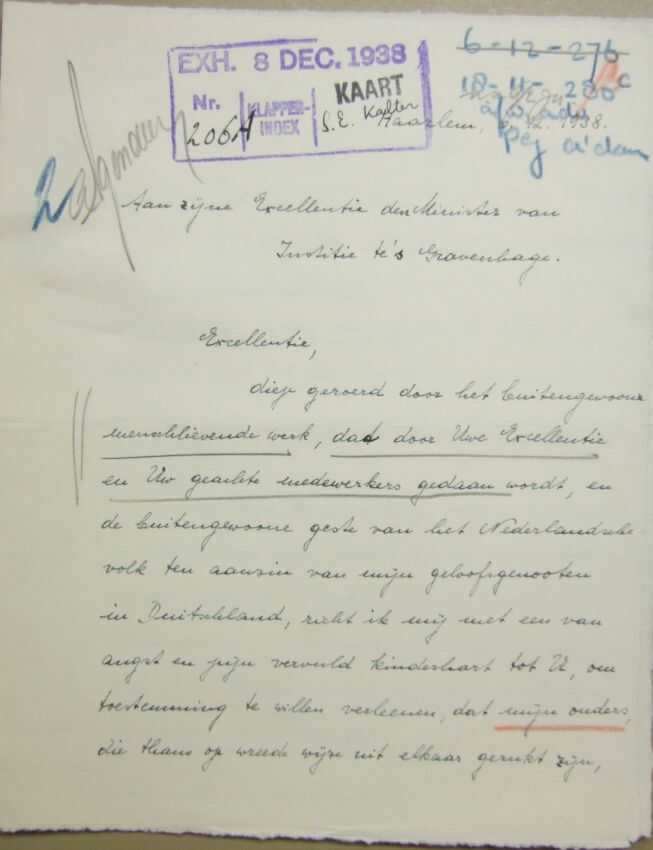 EXH. 8 DEC. 1938
Nr. 206A
KLAPPER-
INDEX
KAART
S. E. Kalter
6-12-276
18-11- 280c
Haarlem, 12. 1938.
Pey a'dam
2
Aan zijne Excellentie den Minister van
Justitie te 's Gravenhage.
Excellentie,
diep geroerd door het buitengewoone
menschlievende werk, dat door Uwe Excellentie
en Uw geachte medewerkers gedaan wordt, en
de buitengewoone geste van het Nederlandsche
volk ten aanzien van mijn geloofsgenooten
in Duitschland, richt ik mij met een van
angst en pijn vervuld kinderhart tot U, om
toestemming te willen verleenen, dat mijn ouders,
die thans op wreede wijze uit elkaar gerukt zijn,